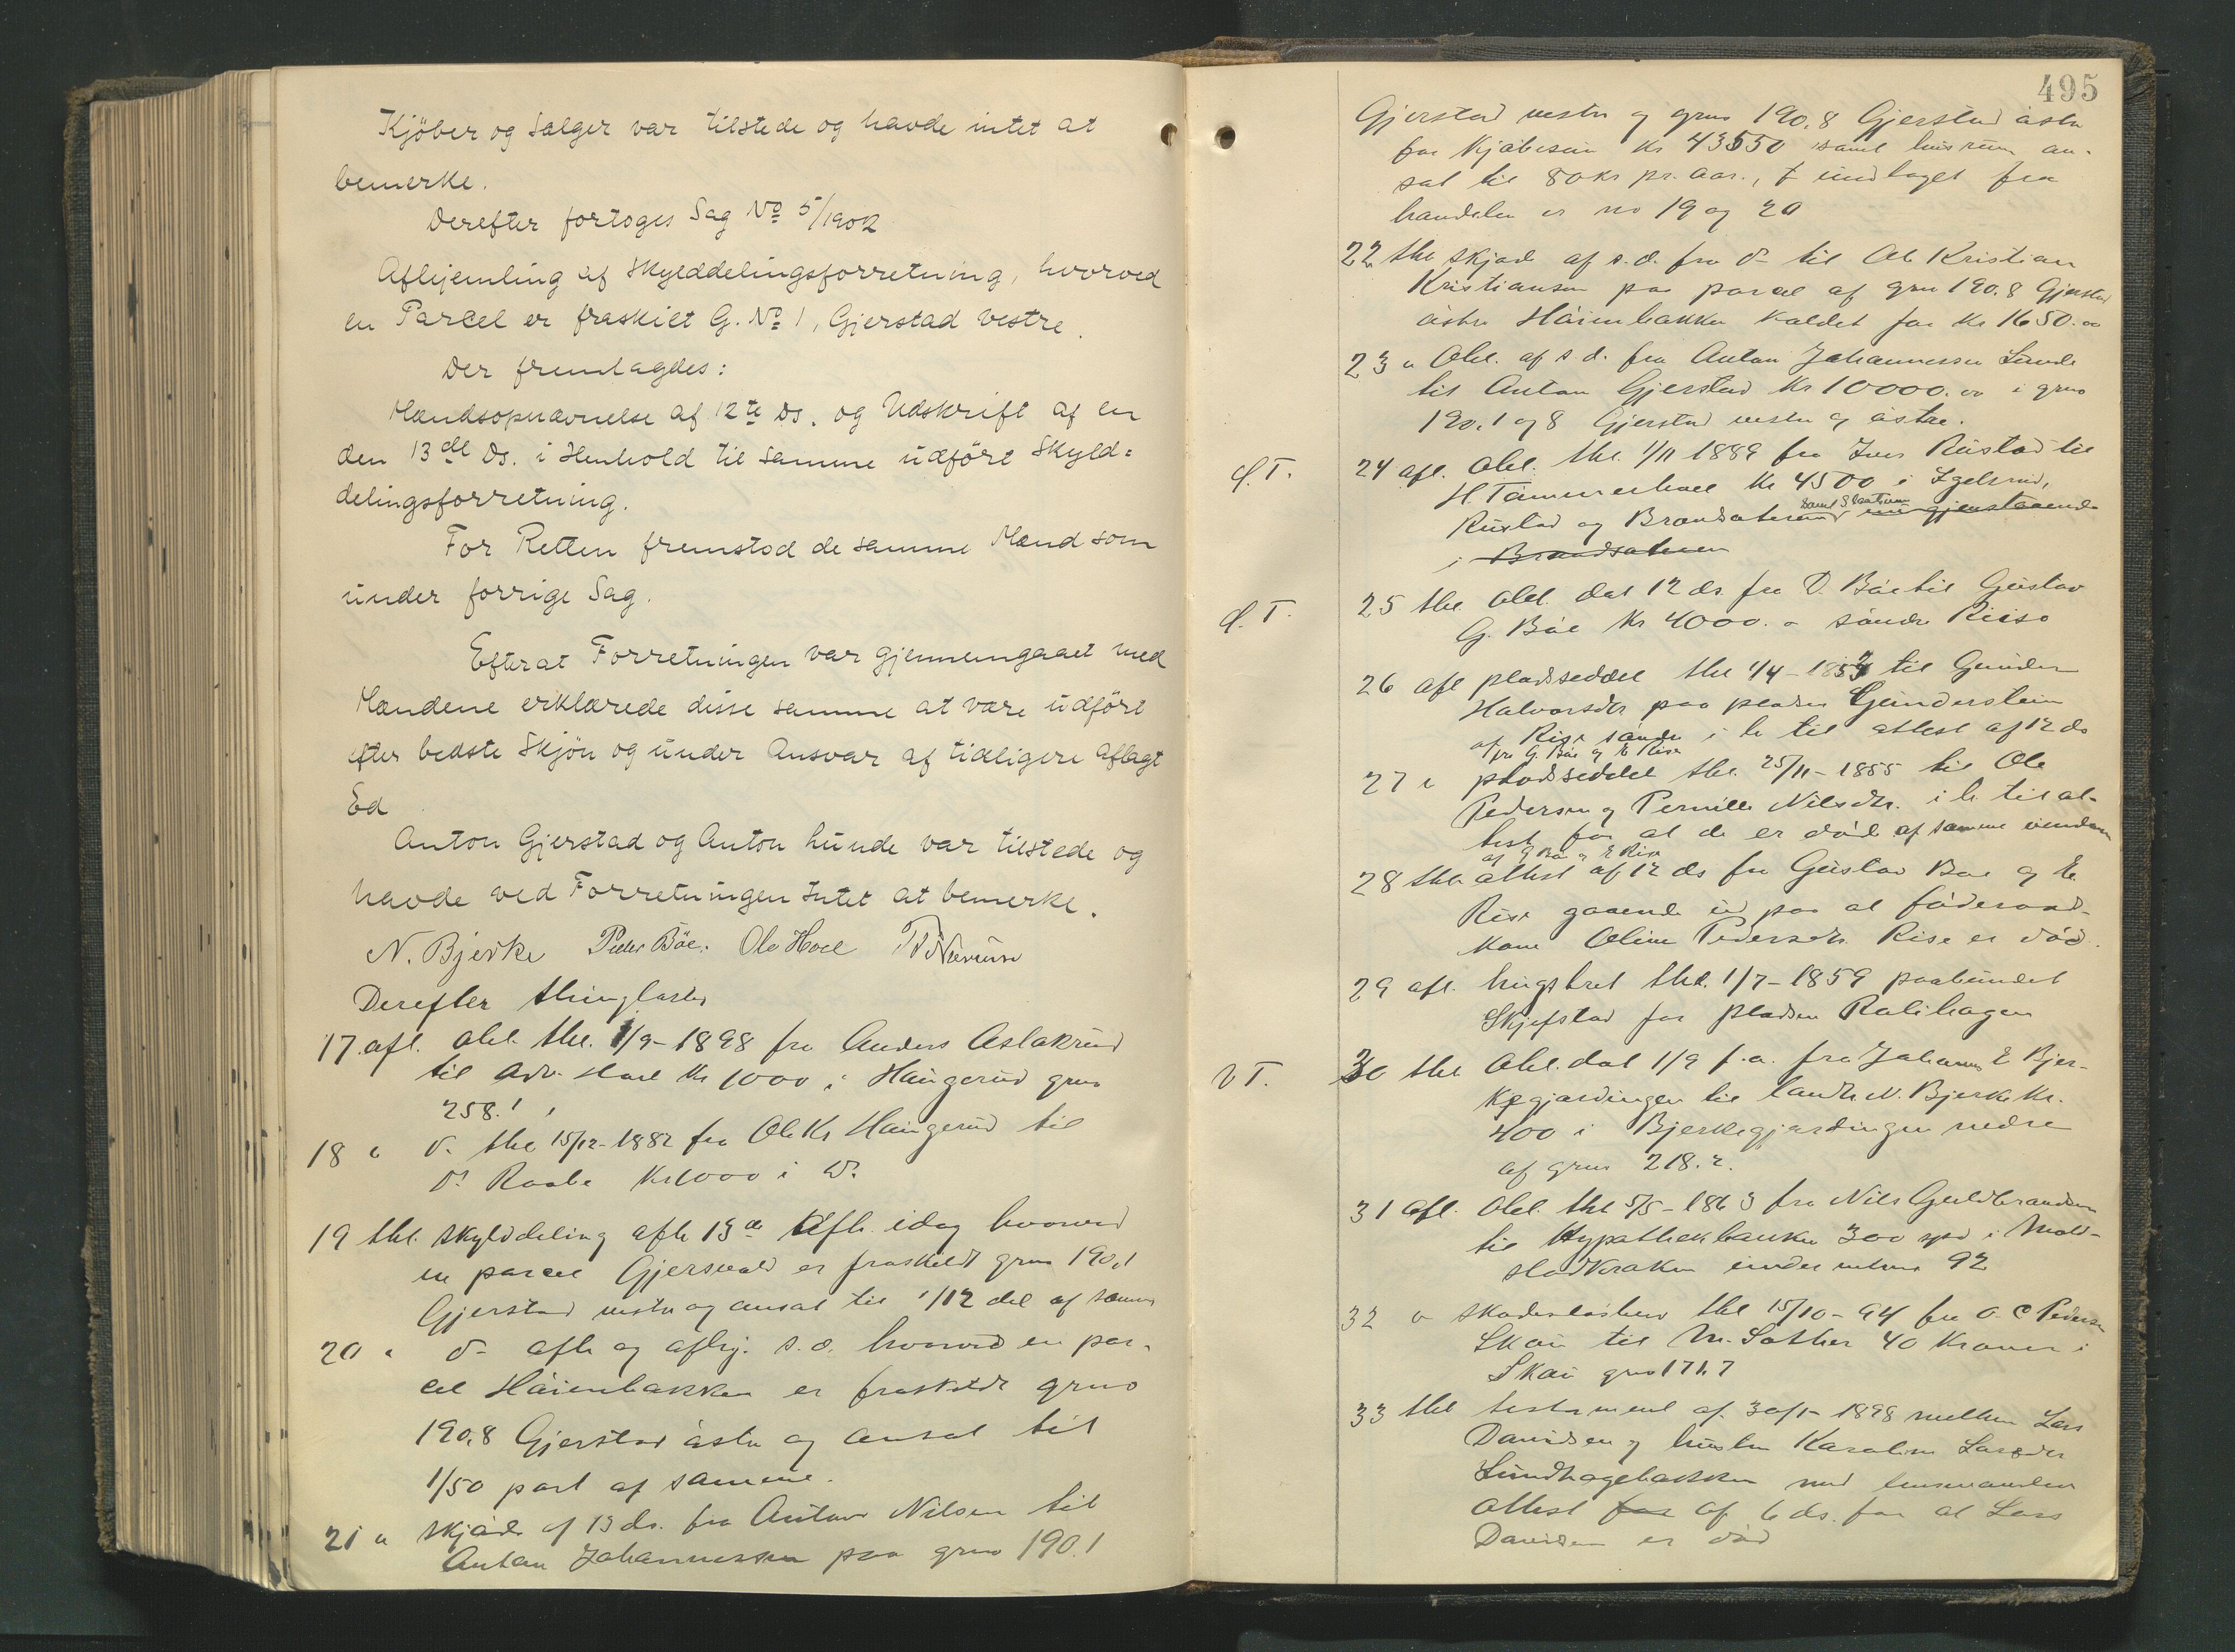 Kjöber og Sælger var tilstede og havde intet at
bemerke.
Derefter fortoges Sag No 5/1902
Afhjemling af Skylddelingsforretning, hvorved
en Parcel er fraskilt G. No 1, Gjerstad vestre.
Der fremlagdes:
Mændsopnævnelse af 12te Ds. og Udskrift af en
den 13de Ds. i Henhold til samme udført Skyld=
delingsforretning.
For Retten fremstod de samme Mænd som
under forrige Sag.
Efterat Forretningen var gjennemgaaet med
Mændene erklærede disse samme at være udført
efter bedste Skjön og under Ansvar af tidligere aflagt
Ed
Anton Gjerstad og Anton Lunde var tilstede og
havde ved Forretningen Intet at bemerke.
N. Bjerke Peder Böe. Ole Hoel
Derefter thinglæstes
17. afl. obl. thl. 1/9-1898 fra Anders Aslakrud
til Adv. Hoel Kr 1000 i Haugerud grno
258.1,
18 " d. thl 15/12-1882 fra Ole Kr Haugerud til
D. Raabe Kr 1000 i d.
19 thl. skylddeling afh 13de afh. idag hvorved
en parcel Gjersvold er fraskildt grno 190.1
Gjerstad vestre og ansat til 1/12 del af samme
20 " d- afh og afhj. s.d. hvorved en par-
cel Höienbakken er fraskildt grno
190.8 Gjerstad östre og ansat til
1/50 part af samme.
21 " skjöde af 13 ds. fra Anton Nilsen til
Anton Johannessen paa grno 190.1
495
Gjerstad vestre og grno 190.8 Gjerstad östre
for Kjöbesum Kr 43550 samt husrum an-
sat til 80 kr pr. aar., undtaget fra
handelen er no 19 og 20
22 thl skjöde af s.d. fra d- til Ole Kristian
Kristiansen paa parcel af grno 190.8 Gjerstad
östre Höienbakken kaldet for Kr 1650.00
23 " Obl. af s.d. fra Anton Johannessen Lunde
til Anton Gjerstad Kr 10000.00 i grno
190.1 og 8 Gjerstad vestre og östre.
d.T. 24 afl. Obl. thl. 1/11 1889 fra Iver Rustad til
H. Tömmerhoel Kr 4500 i Igelsrud,
samt Slaatrum
Rustad og Brandsæteren gjenstaaende
i Brandsæteren
d.T. 25 thl Obl. dat 12 ds. fra O. Böe til Gustav
G. Böe Kr 4000.- söndre Riise
26 afl pladsseddel thl 1/4-1857 til Gunder
Halvorsdr paa pladsen Gunderstein
af Rise söndre i h til attest af 12 ds
fra G. Böe og E Rise
27 " pladsseddel thl. 25/11-1855 til Ole
Pedersen og Pernille Nilsdr. i h. til at-
test for at de er död af samme eiendom
af G Böe og E Rise
28 thl attest af 12 ds fra Gustav Böe og E.
Rise gaaende ud paa at föderaad-
kone Oline Pedersdr. Rise er död.
29 afl. hugstret thl. 1/7-1859 paabundet
Skjefstad for pladsen Ralihagen
V T. 30 thl Obl. dat 1/9 f.a. fra Johannes E Bjer-
kegjærdingen til landh. N. Bjerke Kr.
400 i Bjerkegjærdingen nedre
af grno 218.2.
31 afl. Obl. thl 5/5-1863 fra Nils Guldbrandsen
til Hypothekbanken 300 spd i Mold-
stadkroken under matrno 92
32 " skadeslösbrev thl 15/10-94 fra O. C Pedersen
Skou til M. Sæther 40 Kroner i
Skou grno 171.7
33 thl testament af 30/1-1898 mellem Lars
Davidsen og hustru Karoline Larsdr
Lundhagebakken med lensmanden
attest for af 6 ds. for at Lars
Davidsen er död